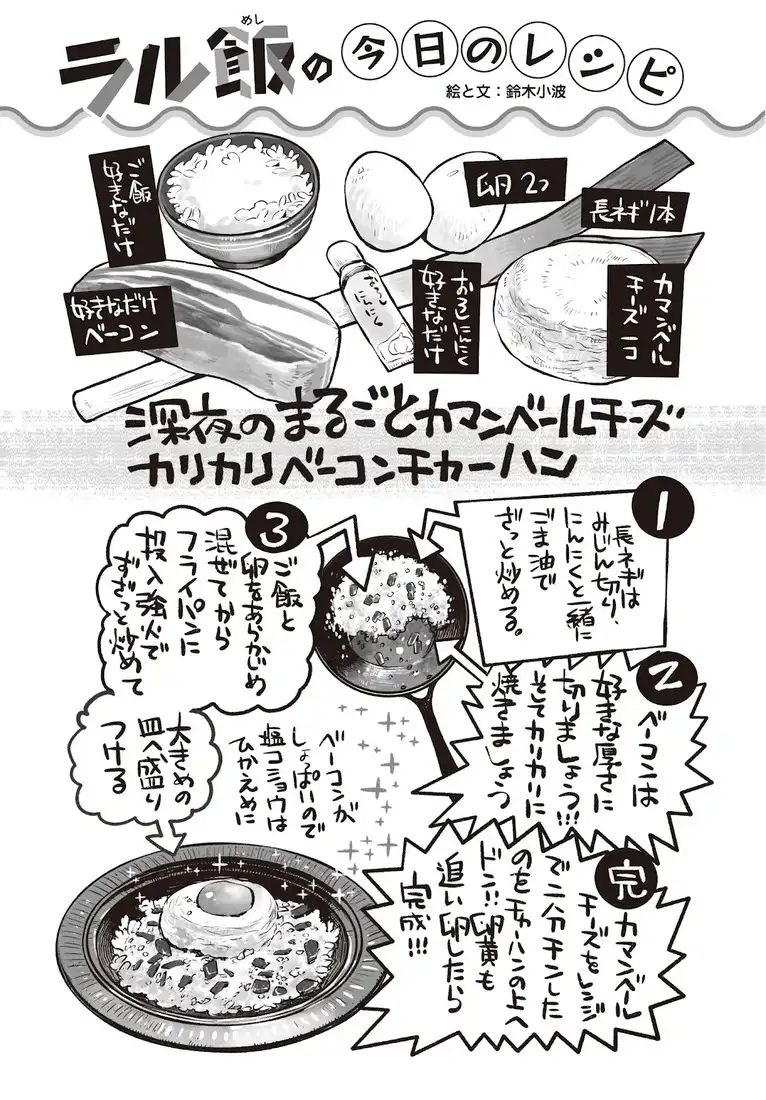 めし
ラル飯の今日のレシピ
絵と文：鈴木小波
ご飯
好きなだけ
卵2つ
長ネギ1本
好きなだけ
ベーコン
おろし
にんにく
おろしにんにく
好きなだけ
カマンベール
チーズ一コ
深夜のまるごとカマンベールチーズ
カリカリベーコンチャーハン
1
長ネギは
みじん切り、
にんにくと一緒に
ごま油で
ざっと炒める。
2
ベーコンは
好きな厚さに
切りましょう!!!
そしてカリカリに
焼きましょう
3
ご飯と
卵をあらかじめ
混ぜてから
フライパンに
投入強火で
ずざっと炒めて
大きめの
皿へ盛り
つける
ベーコンが
しょっぱいので
塩コショウは
ひかえめに
完
カマンベール
チーズをレンジ
で二分チンした
のをチャーハンの上へ
ドン!!卵黄も
追い卵したら
完成!!!